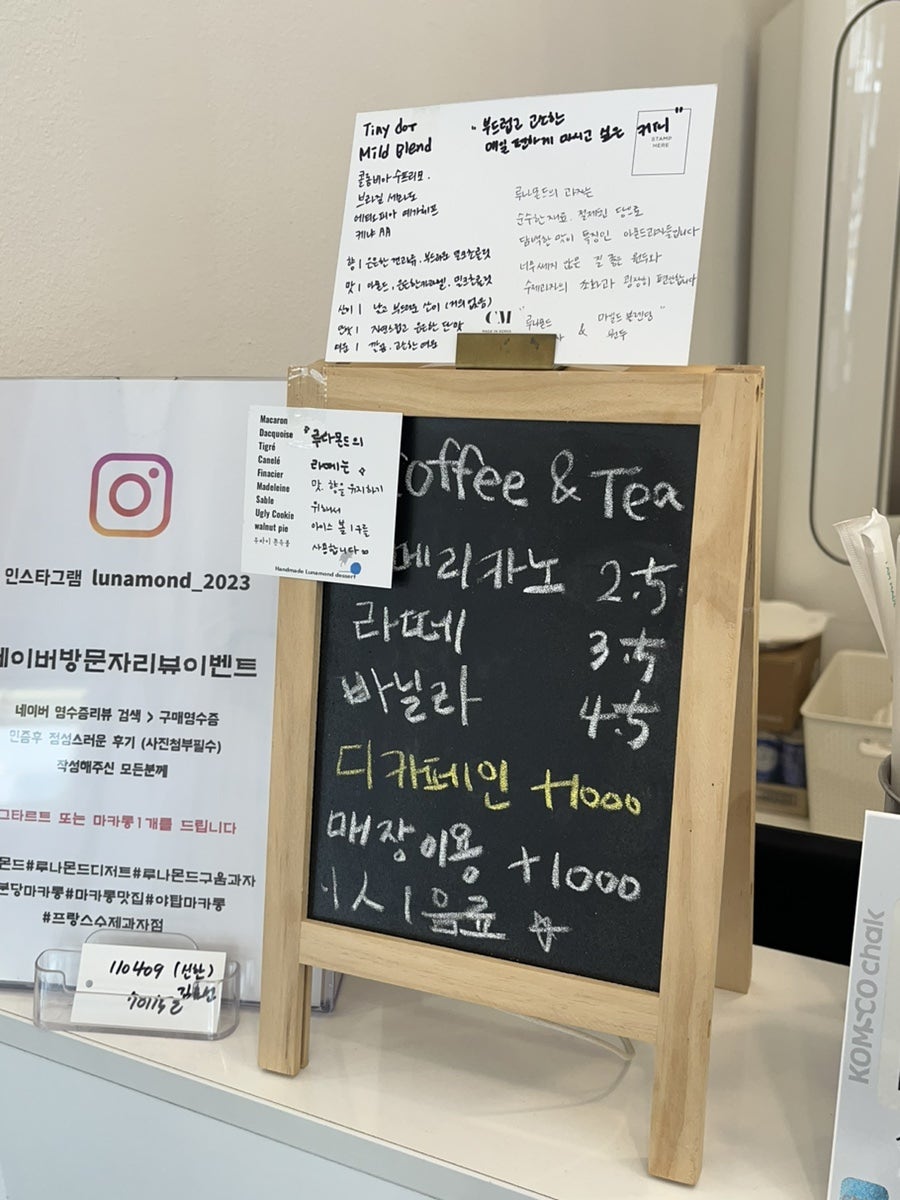 Tiny dot
Mild Blend
콜롬비아 수프리모.
브라질 세라도
에티오피아 예가체프
케냐 AA
향 | 은은한 견과류, 부드러운 밀크초콜릿
맛 | 아몬드, 은은한 카라멜, 밀크초콜릿
산미 | 낮고 부드러운 산미 (거의 없음)
단맛 | 자연스럽고 은은한 단맛
여운 | 깔끔, 고소한 여운
"부드럽고 고소한
매일 편하게 마시고 싶은 커피"
STAMP
HERE
루나몬드의 과자는
순수한 재료, 절제된 당으로
담백한 맛이 특징인 아몬드과자들입니다
너무 세지 않은 질 좋은 원두와
수제과자의 조화가 굉장히 편안합니다
"루나몬드
& 마일드 블렌딩"
원두
CM
MADE IN KOREA
Macaron
Dacquoise
Tigré
Canelé
Finacier
Madeleine
Sable
Ugly Cookie
walnut pie
"루나몬드의
라떼는
맛, 향을 유지하기
위해서
아이스 볼 1구를
사용합니다
Handmade Lunamond dessert
Coffee & Tea
메리카노 2.5
라떼 3.5
바닐라 4.5
디카페인 +1000
매장이용 +1000
1人 1음료 ☆
인스타그램 lunamond_2023
네이버방문자리뷰이벤트
네이버 영수증리뷰 검색 > 구매영수증
인증후 정성스러운 후기 (사진첨부필수)
작성해주신 모든분께
그타르트 또는 마카롱1개를 드립니다
몬드#루나몬드디저트#루나몬드구움과자
분당마카롱#마카롱맛집#야탑마카롱
#프랑스수제과자점
110409 (신한)
KOMSCO chak